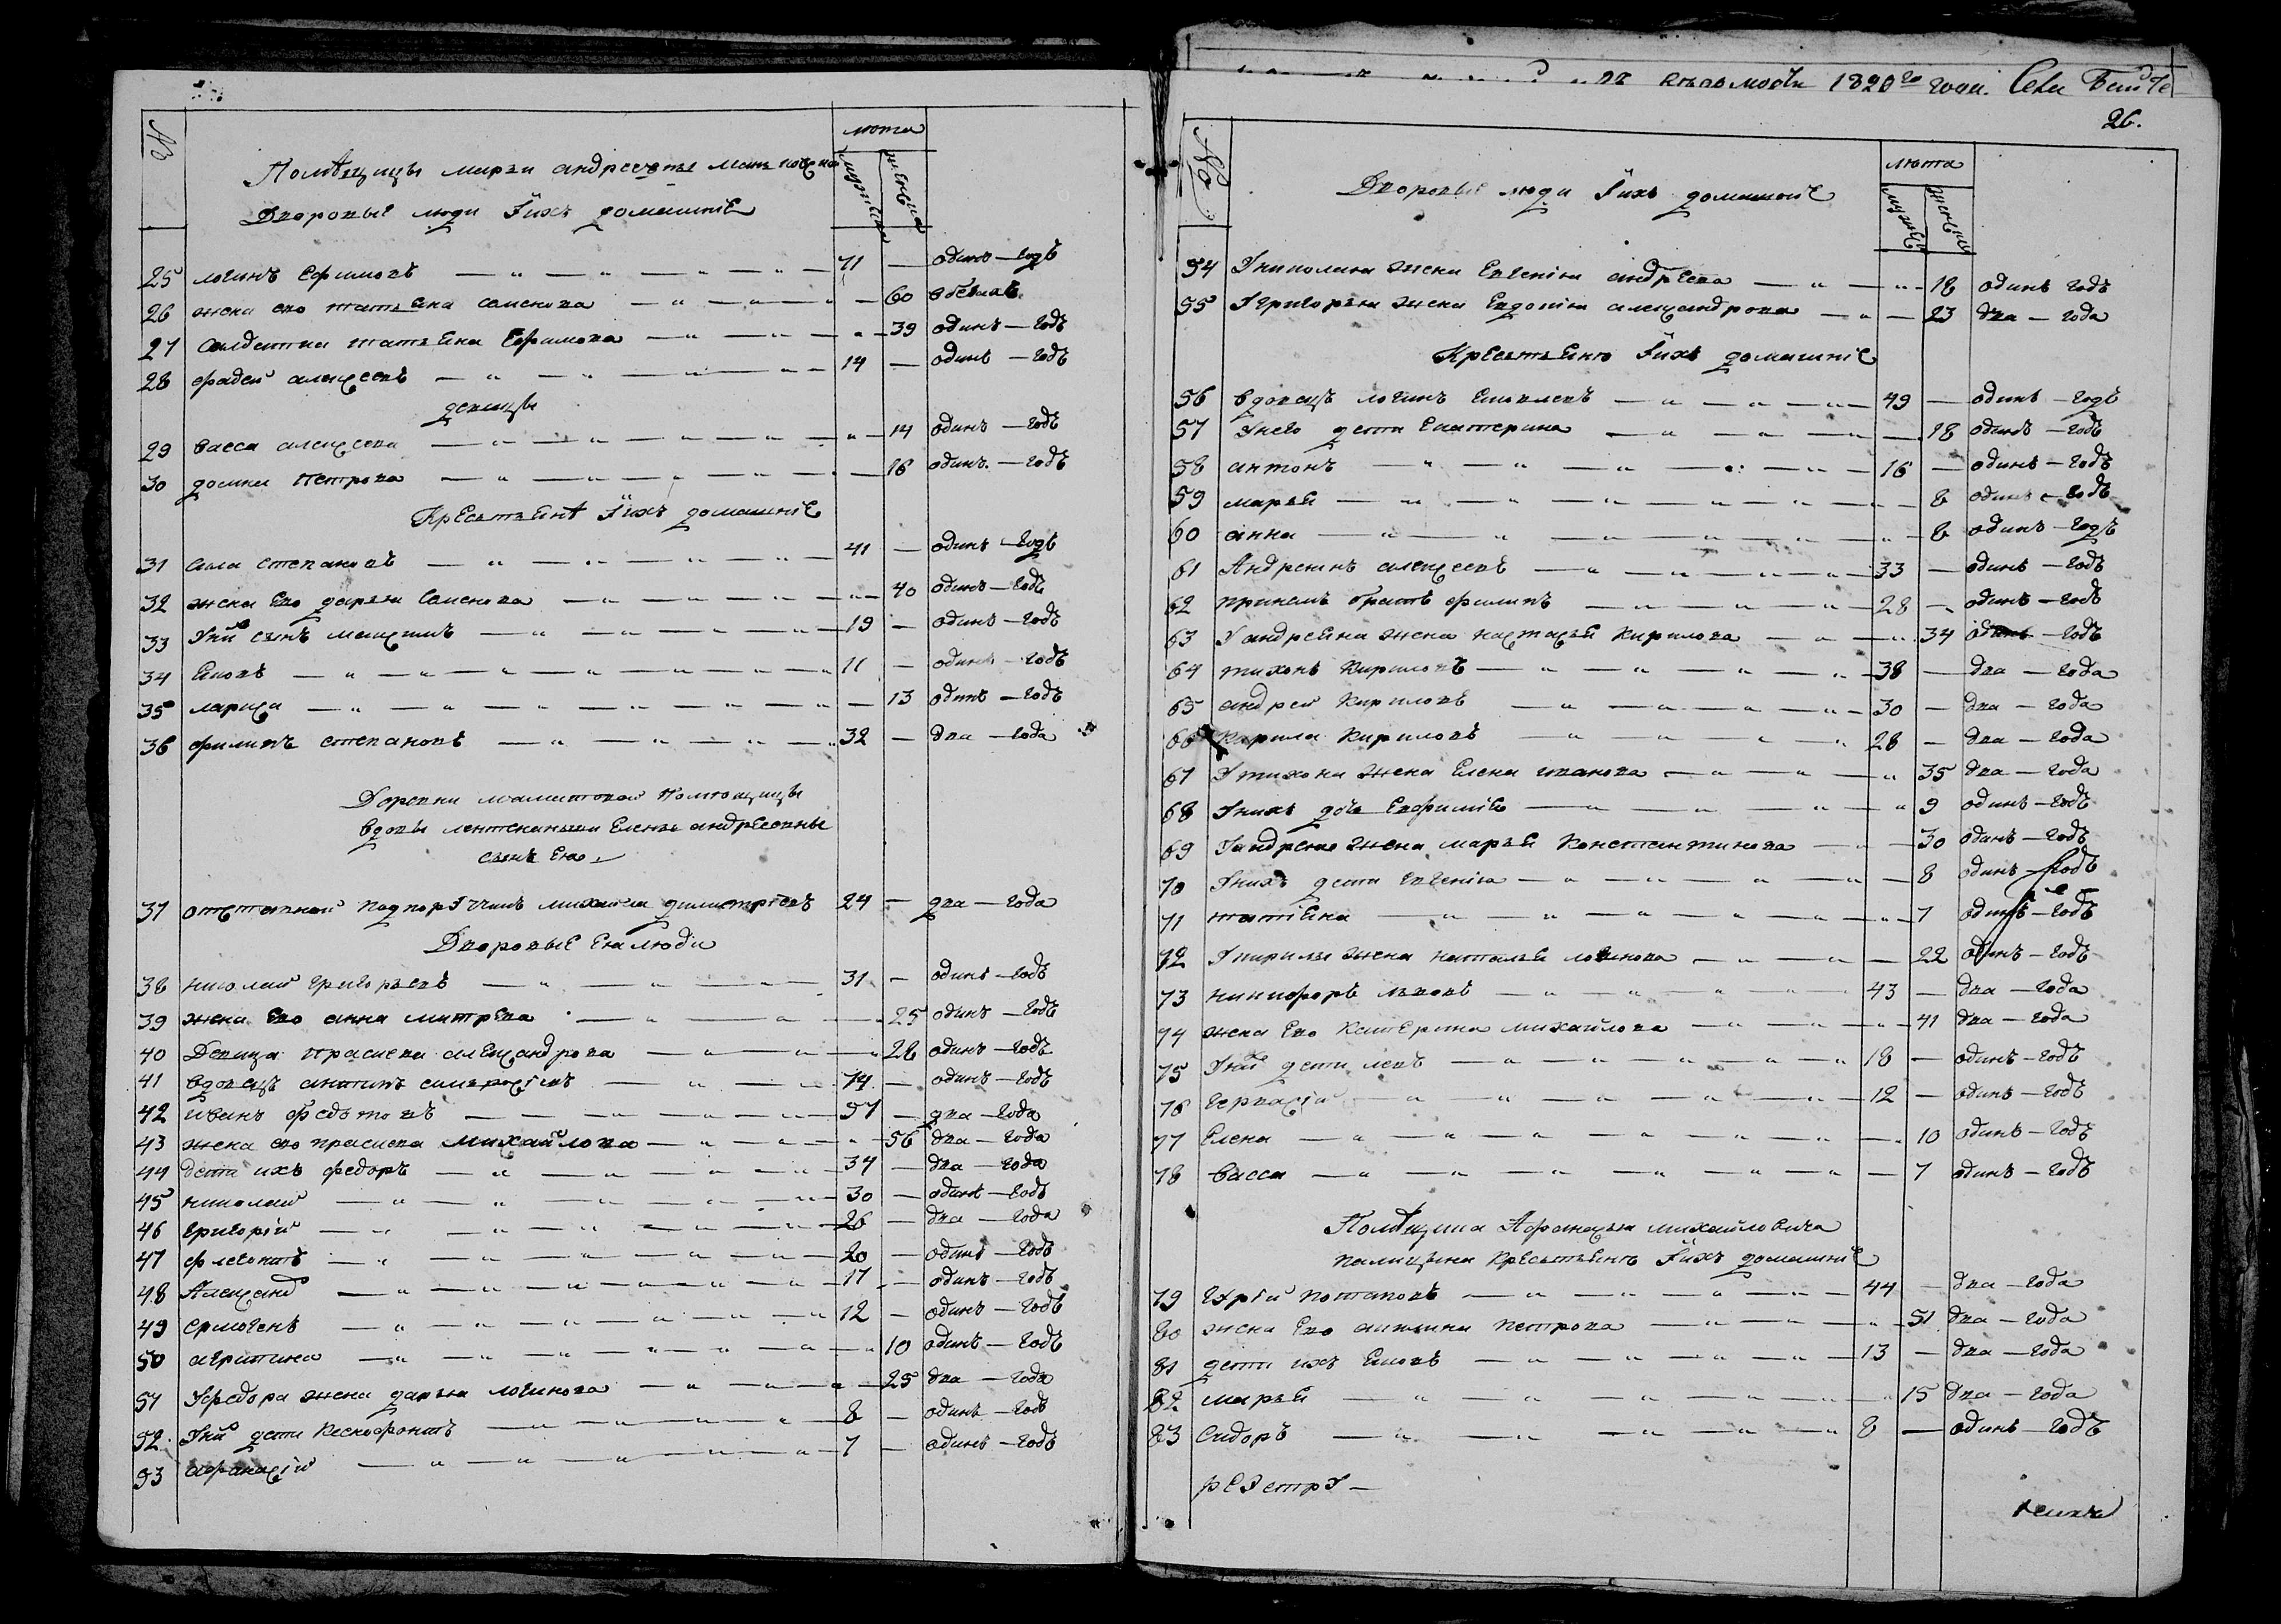 №
лѣта
мужска
женска
Помѣщицы марьи андреевны
Дворовые люди Ѵихъ домашнiе
25 логинъ Ефимовъ 71 — одинъ — годъ
26 жена ево татьяна семенова — 60
27 салдатка татьяна Ефимова — 39 одинъ — годъ
28 фадей алексеевъ 14 — одинъ — годъ
девицы
29 васса алексеева — 14 одинъ — годъ
30 домна Петрова — 16 одинъ — годъ
Крестьянѣ Ѵихъ домашнiе
31 сила степановъ 41 — одинъ — годъ
32 жена Ево дарья Семенова — 40 одинъ — годъ
33 Ѵнихъ сынъ максимъ 19 — одинъ — годъ
34 Яковъ 11 — одинъ — годъ
35 лариса — 13 одинъ — годъ
36 филипъ степановъ 32 — два — года
Деревни помѣщицы
вдовы Елены андреевны
сынъ Ею
37 отставной подпорѴчикъ михаила димитрiевъ 24 — два — года
Дворовые Ею люди
38 николай григорьевъ 31 — одинъ — годъ
39 жена Ево анна митрева — 25 одинъ — годъ
40 Девица прасковя александрова — 28 одинъ — годъ
41 вдовецъ антипъ 74 — одинъ — годъ
42 иванъ федотовъ 57 — два — года
43 жена ево прасковя михайлова — 56 два — года
44 дети ихъ федоръ 34 — два — года
45 николай 30 — одинъ — годъ
46 григорiй 26 — два — года
47 флегонтъ 20 — одинъ — годъ
48 Александ 17 — одинъ — годъ
49 ермогенъ 12 — одинъ — годъ
50 агрипина — 10 одинъ — годъ
51 Ѵфедора жена дарья логинова — 25 два — года
52 Ѵнихъ дети Ксенофонтъ 8 — одинъ — годъ
53 афанасiй 7 — одинъ — годъ
1820го года. Села
26.
№
лѣта
мужска
женска
Дворовые люди Ѵихъ домашнiе
54 Ѵниколая жена Евгенiя андреева — 18 одинъ годъ
55 Ѵгригорья жена Евдокiя александрова — 23 два — года
Крестьянѣ Ѵихъ домашнiе
56 вдовецъ логинъ Яковлевъ 49 — одинъ — годъ
57 Ѵнего дети Екатерина — 18 одинъ — годъ
58 антонъ 16 — одинъ — годъ
59 марья — 8 одинъ — годъ
60 анна — 6 одинъ — годъ
61 Андреянъ алексеевъ 33 — одинъ — годъ
62 братъ филипъ 28 — одинъ — годъ
63 Ѵандреяна жена настасья Кирилова — 34 одинъ — годъ
64 тихонъ Кириловъ 38 — два — года
65 андрей Кириловъ 30 — два — года
66 Кирила Кириловъ 28 — два — года
67 Ѵтихона жена Елена иванова — 35 два — года
68 Ѵнихъ дочь Евфимiя — 9 одинъ — годъ
69 Ѵандрея жена марья Константинова — 30 одинъ — годъ
70 Ѵнихъ дети Евгенiя — 8 одинъ — годъ
71 татiяна — 7 одинъ — годъ
72 Ѵкирилы жена наталья логинова — 22 одинъ — годъ
73 никифоръ львовъ 43 — два — года
74 жена Ево Катерина михайлова — 41 два — года
75 Ѵнихъ дети левъ 18 — одинъ — годъ
76 гервасiй 12 — одинъ — годъ
77 Елена — 10 одинъ — годъ
78 васса — 7 одинъ — годъ
Помѣщика Афанасья михайловича
палицына Крестьянѣ Ѵихъ домашнiе
79 гѴрiй потаповъ 44 — два — года
80 жена Ево акилина петрова — 51 два — года
81 дети ихъ Яковъ 13 — два — года
82 марья — 15 два — года
83 Сидоръ 8 — одинъ — годъ